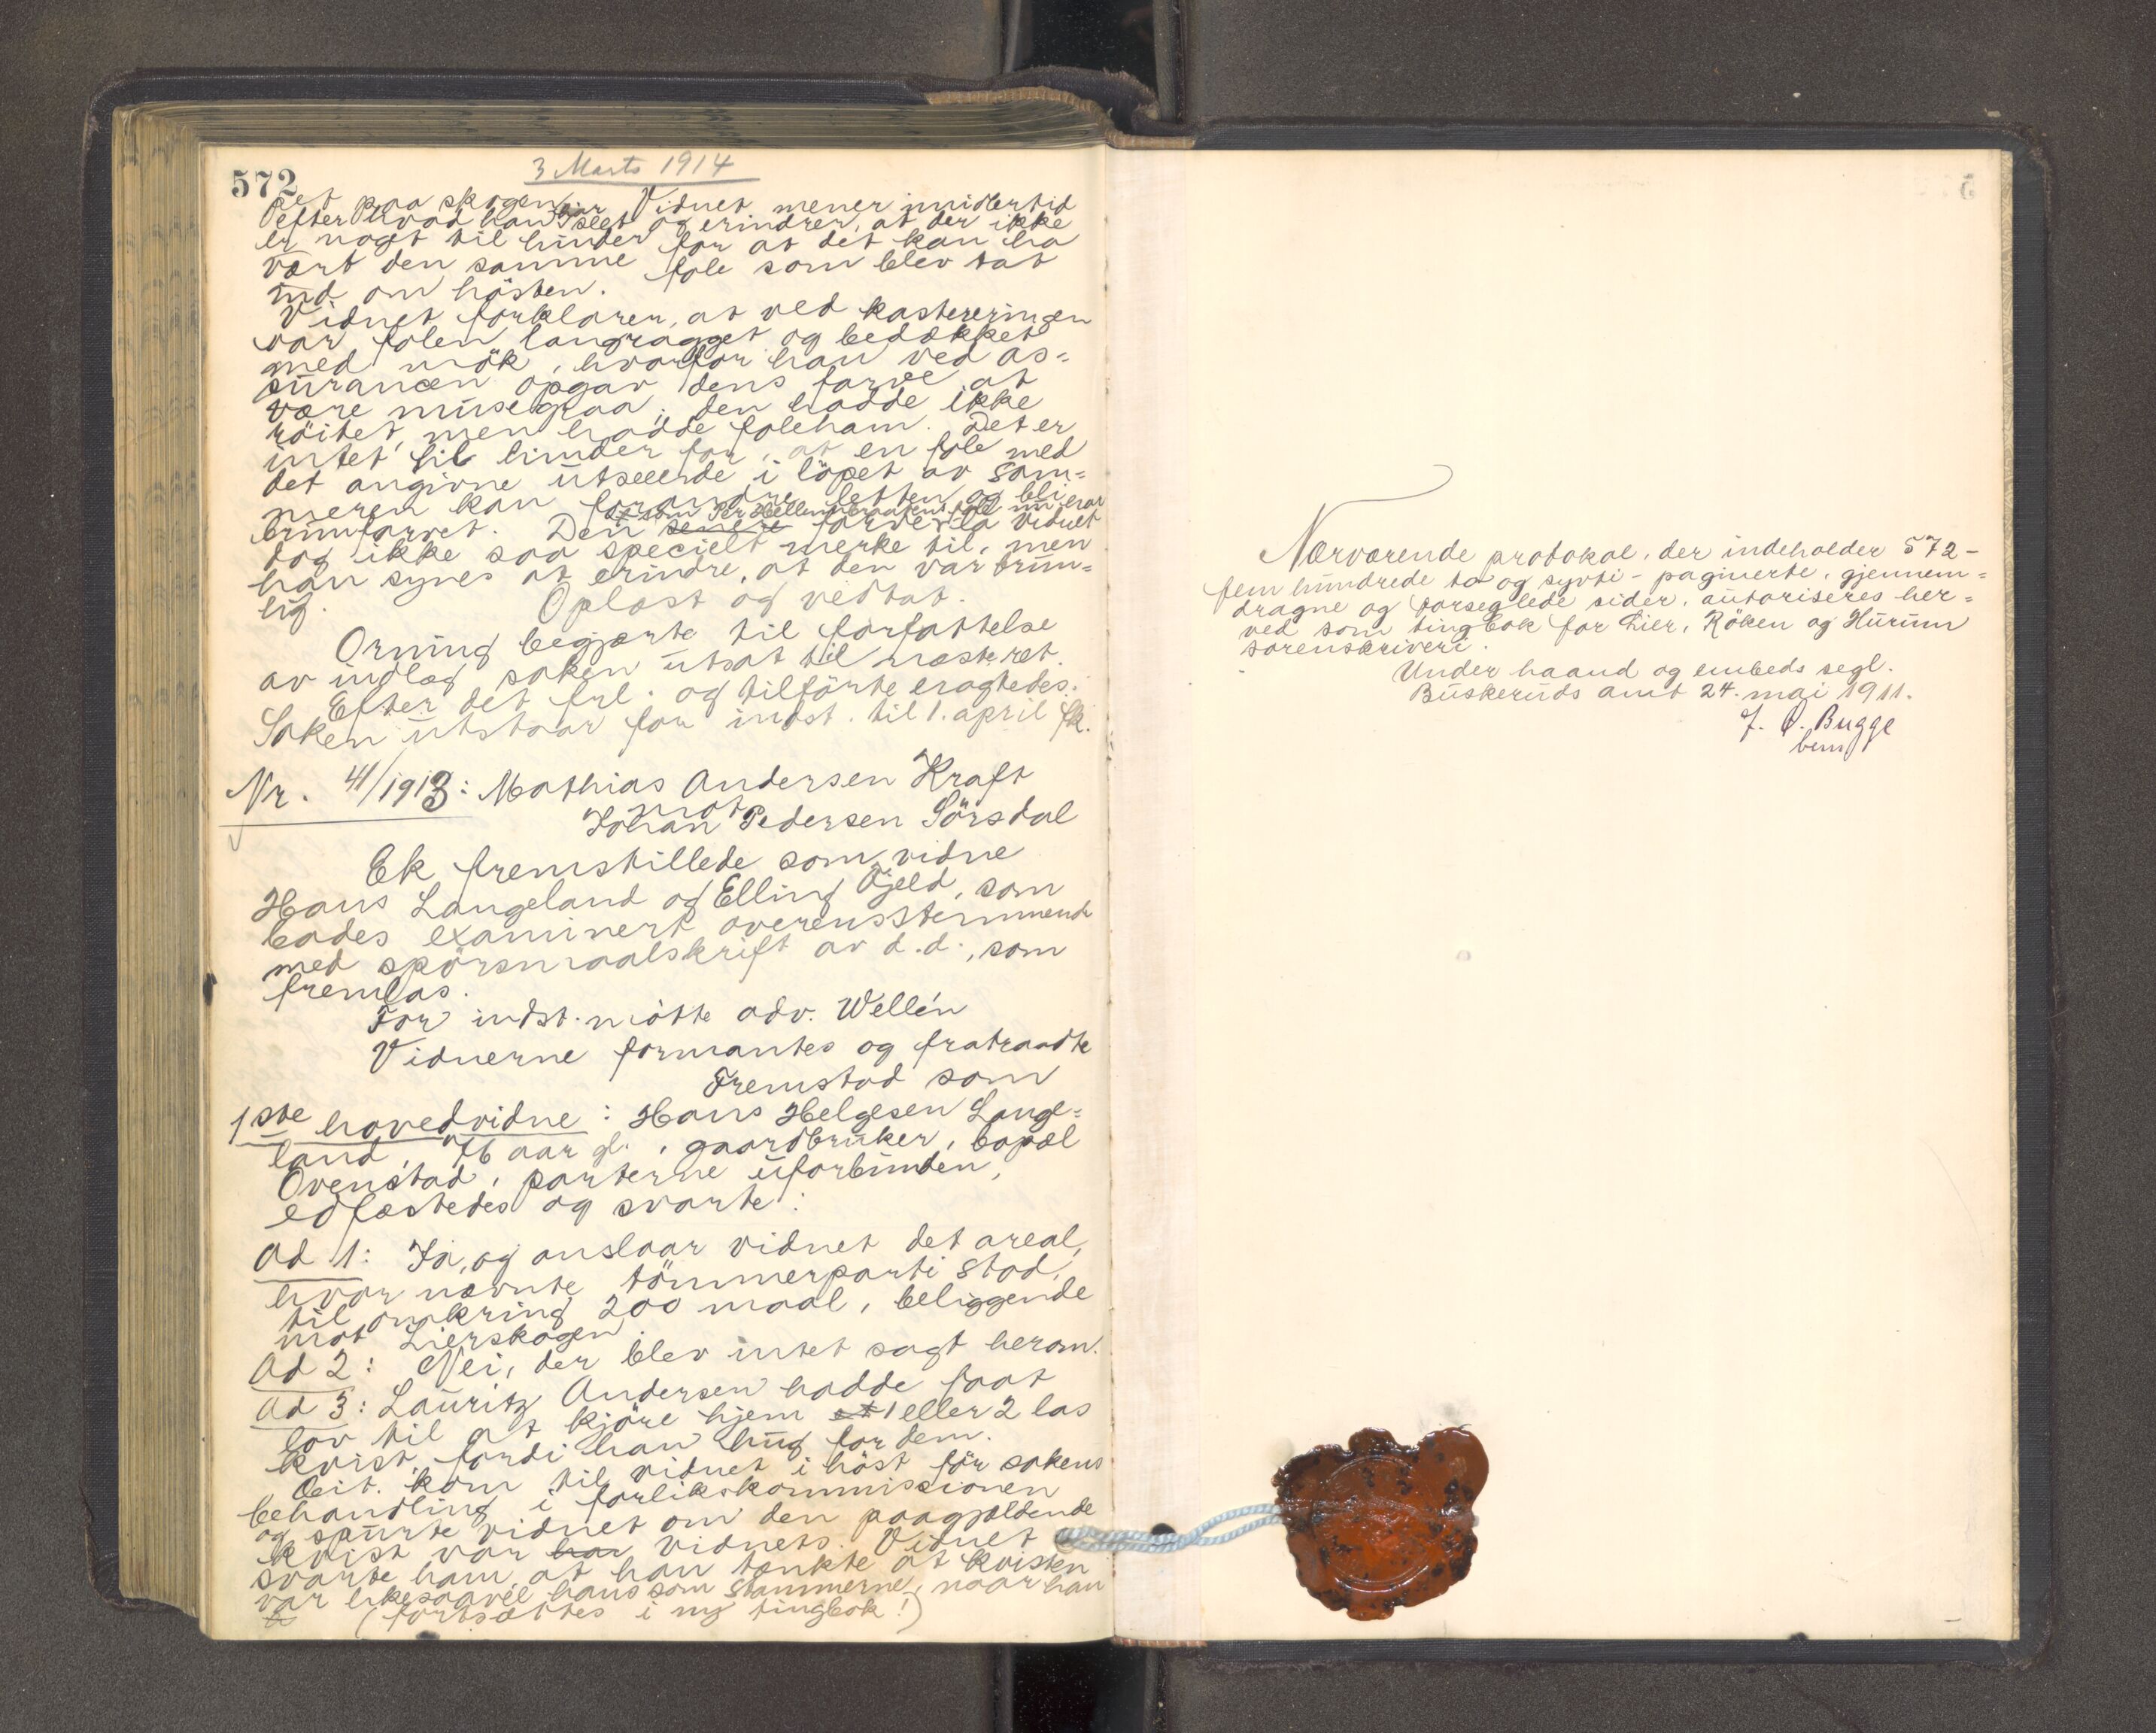 572
3 Marts 1914
et paa skogen her. Vidnet mener imidlertid
efter hvad han har seet og erindrer, at der ikke
er nogt til hinder for at det kan ha
vært den samme fole som blev tat
ind om hösten.
Vidnet forklarer, at ved kastreringen
var folen langragget og bedækket
med mök, hvorfor han ved as=
surancen opgav dens farve at
være musegraa; den hadde ikke
röitet, men hadde foleham. Det er
intet til hinder for, at en fole med
det angivne utseende i löpet av som=
meren kan forandre letten og bli
brunfarvet. Den farve la vidnet
dog ikke saa specielt merke til, men
han synes at erindre, at den var brun=
lig.
Oplæst og vedtat.
Orning begjærte til forfattelse
av indlæg saken utsat til næste ret.
Efter det frl. og tilförte eragtedes:
Saken utstaar for indst. til 1. april fk.
Nr. 41/1913: Mathias Andersen Kraft
mot
Johan Pedersen Sörsdal
Ek fremstillede som vidne
Hans Langeland og Elling Gjeld, som
bades examinert overensstemmende
med spörsmaalskrift av d.d., som
fremlas.
For indst. mötte adv. Wellén
Vidnerne formantes og fratraadte
Fremstod som
1ste hovedvidne: Hans Helgesen Lange=
land, 76 aar gl., gaardbruker, bopæl
Ovenstad, parterne uforbunden,
edfæstedes og svarte:
Ad 1: Ja, og anslaar vidnet det areal,
hvor nævnte tömmerparti stod,
til omkring 200 maal, beliggende
mot Lierskogen.
Ad 2: Nei, der blev intet sagt herom.
Ad 3: Lauritz Andersen hadde faat
lov til at kjöre hjem et 1 eller 2 las
kvist, fordi han hug for dem.
Cit. kom til vidnet i höst för sakens
behandling i forlikskommissionen
og spurte vidnet om den paagjældende
kvist var har vidnets. Vidnet
svarte ham at han tænkte at kvisten
var likesaavel hans som stammerne, naar han
(fortsættes i ny tingbok!)
Nærværende protokol, der indeholder 572-
fem hundrede to og sytti - paginerte, gjennem=
dragne og forseglede sider, autoriseres her=
ved som tingbok for Lier, Röken og Hurum
sorenskriveri.
Under haand og embeds segl.
Buskeruds amt 24. mai 1911.
J. O. Bugge
bem